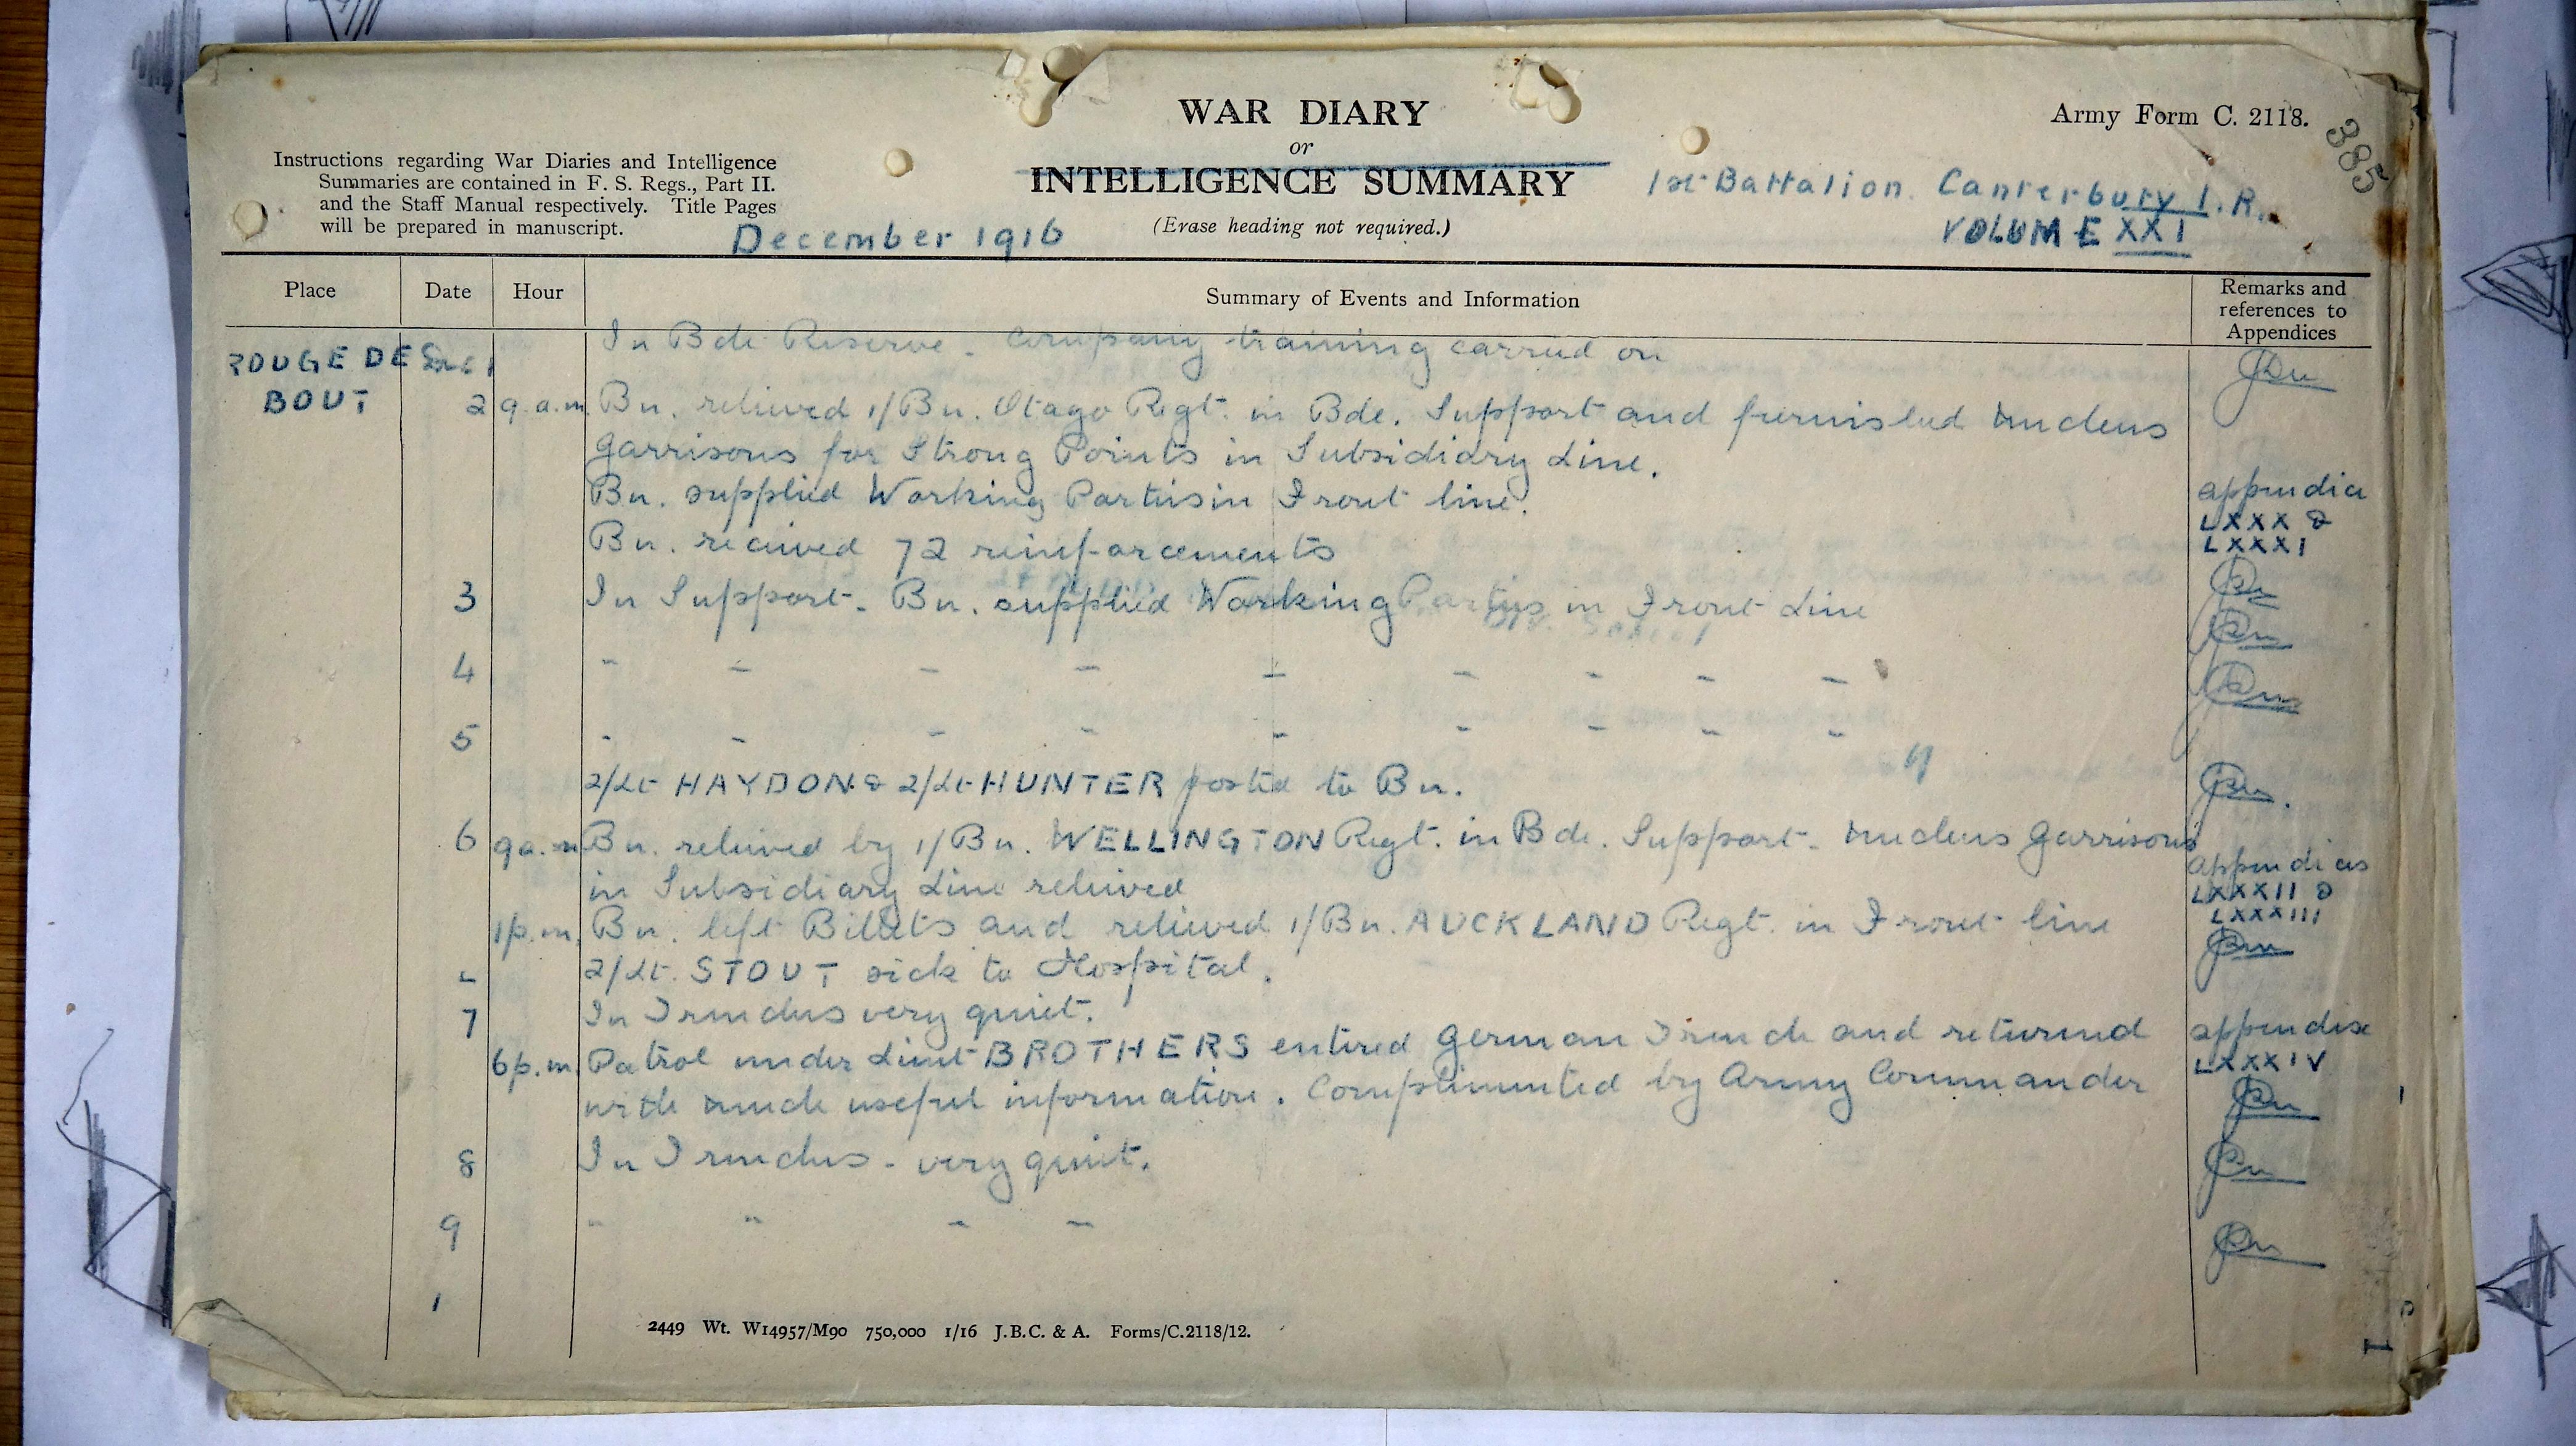 WAR DIARY
or
INTELLIGENCE SUMMARY
(Erase heading not required.)
Army Form C. 2118.
385
Instructions regarding War Diaries and Intelligence
Summaries are contained in F. S. Regs., Part II.
and the Staff Manual respectively. Title Pages
will be prepared in manuscript.
December 1916
1st Battalion Canterbury I.R.
VOLUME XXI
Place Date Hour Summary of Events and Information Remarks and references to Appendices
ROUGE DE Dec 1 In Bde Reserve. Company training carried on
BOUT 2 9 a.m. Bn. relieved 1/Bn. Otago Regt. in Bde. Support and furnished nucleus
garrisons for Strong Points in Subsidiary Line.
Bn. supplied Working Parties in Front line. appendice
LXXX &
Bn. received 72 reinforcements LXXXI
3 In Support. Bn. supplied Working Parties in Front Line
4 " " " " " " " " "
5 " " " " " " " " "
2/Lt HAYDON & 2/Lt HUNTER posted to Bn.
6 9 a.m. Bn. relieved by 1/Bn. WELLINGTON Regt. in Bde. Support. nucleus garrisons
in Subsidiary Line relieved appendices
LXXXII &
LXXXIII
1 p.m. Bn. left Billets and relieved 1/Bn. AUCKLAND Regt. in Front line
2/Lt. STOUT sick to Hospital.
7 In Trenches very quiet.
6 p.m. Patrol under Lieut BROTHERS entered German Trench and returned appendix
LXXXIV
with much useful information. Complimented by Army Commander
8 In Trenches - very quiet.
9 " " " "
1
2449 Wt. W14957/M90 750,000 1/16 J.B.C. & A. Forms/C.2118/12.